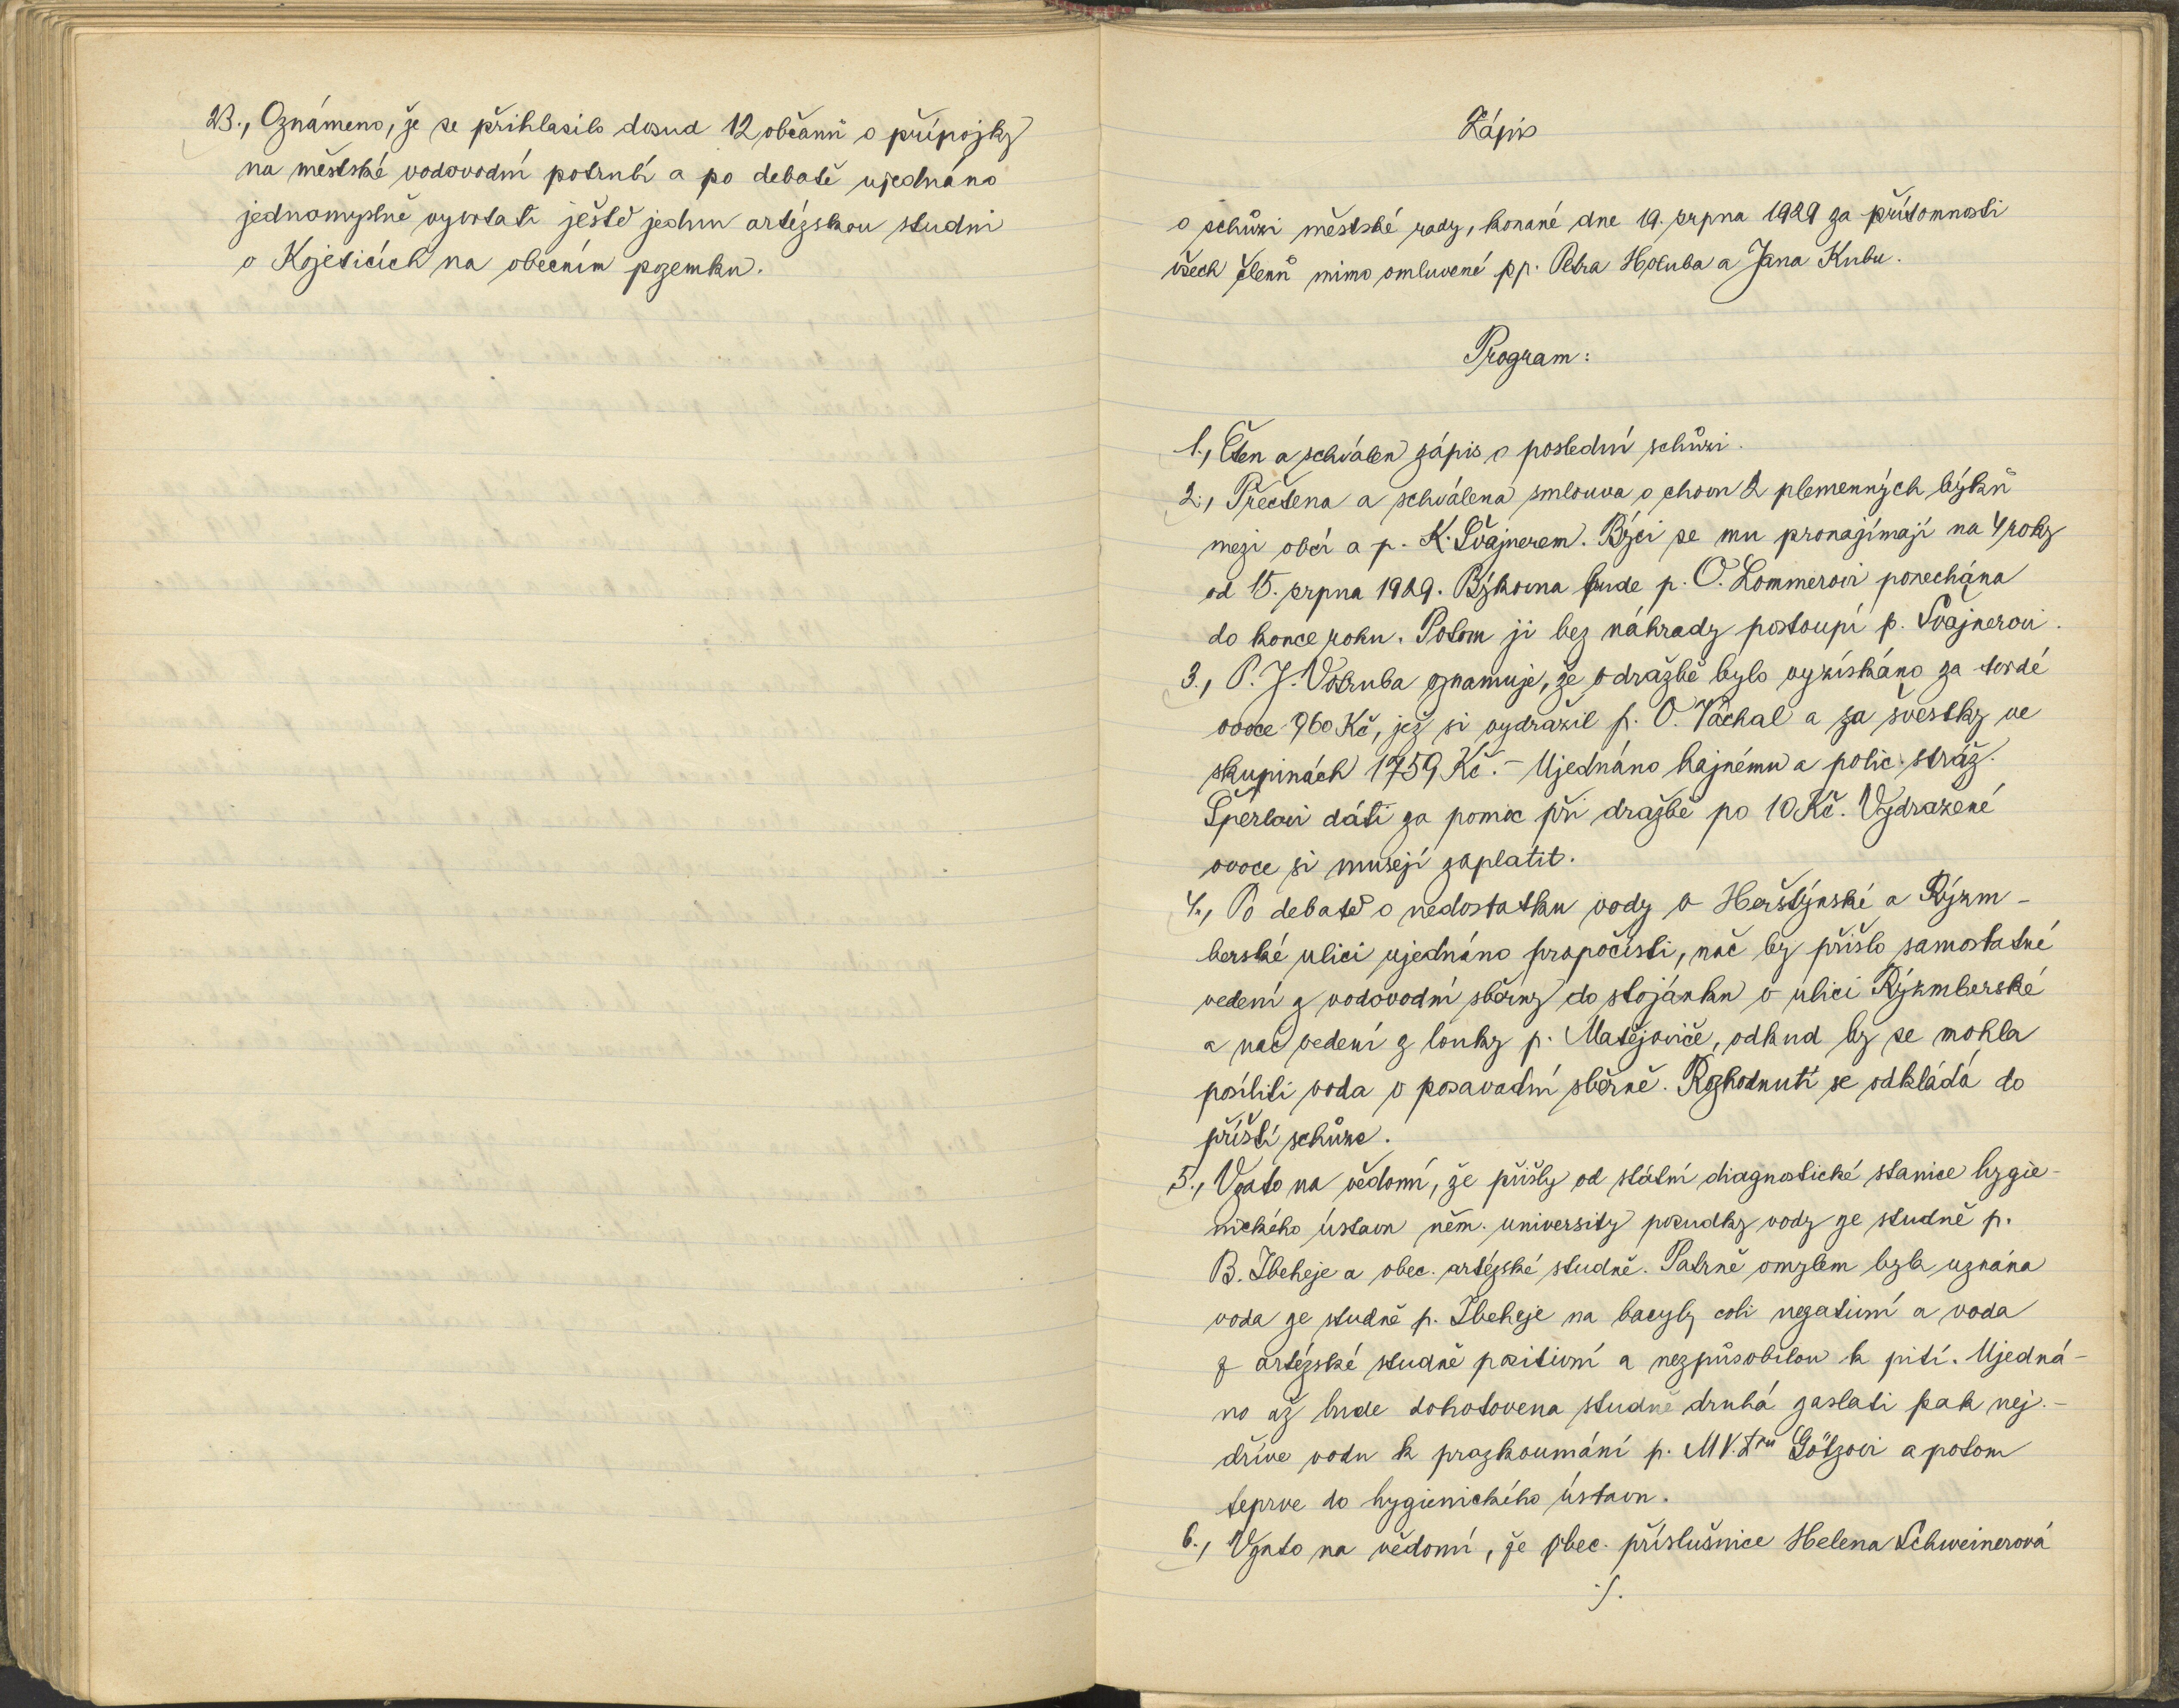 23., Oznámeno, že se přihlasilo dosud 12 občanů o přípojky
na městské vodovodní potrubí a po debatě ujednáno
jednomyslně vyvrtati ještě jednu artézskou studni
v Kojeticích na obecním pozemku.
Zápis
o schůzi městské rady, konané dne 19. srpna 1929 za přítomnosti
všech členů mimo omluvené pp. Petra Holuba a Jana Kubu.
Program:
1., Čten a schválen zápis o poslední schůzi.
2., Přečtena a schválena smlouva o chovu 2 plemenných býků
mezi obcí a p. K. Švajnerem. Býci se mu pronajímají na 4 roky
od 15. srpna 1929. Býkovna bude p. O. Lommerovi ponechána
do konce roku. Potom ji bez náhrady postoupí p. Švajnerovi.
3., P. J. Votruba oznamuje, že v dražbě bylo vyzískáno za tvrdé
ovoce 960 Kč, jež si vydražil p. O. Váchal a za švestky ve
skupinách 1759 Kč. - Ujednáno hajnému a polic. stráž.
Šperlovi dáti za pomoc při dražbě po 10 Kč. Vydražené
ovoce si musejí zaplatit.
4., Po debatě o nedostatku vody v Herštýnské a Rýzm-
berské ulici ujednáno propočísti, nač by přišlo samostatné
vedení z vodovodní sběrny do stojánku v ulici Rýzmberské
a nač vedení z louky p. Matějoviče, odkud by se mohla
posíliti voda v posavadní sběrně. Rozhodnutí se odkládá do
příští schůze.
5., Vzato na vědomí, že přišly od státní diagnostické stanice hygie-
nického ústavu něm. university posudky vody ze studně p.
B. Ibeheje a obec. artézské studně. Patrně omylem byla uznána
voda ze studně p. Ibeheje na bacyly coli negativní a voda
z artézské studně positivní a nezpůsobilou k pití. Ujedná-
no až bude dohotovena studně druhá zaslati pak nej.-
dříve vodu k prozkoumání p. MV.Dru Götzovi a potom
teprve do hygienického ústavu.
6., Vzato na vědomí, že obec. příslušnice Helena Schweinerová
./.